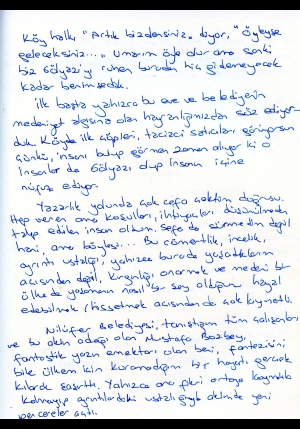 Köy halkı "Artık bizdensiniz" diyor, "Öyleyse
geleceksiniz..." Umarım öyle olur ama sanki
biz Gölyazı'yı ruhen buradan hiç gidemeyecek
kadar benimsedik.
İlk başta yalnızca bu eve ve belediyenin
medeniyet algısına olan hayranlığımızdan söz ediyor-
duk. Köyde ilk çöpleri, tacizci satıcıları görüyorsun
çünkü, insanı bulup görmen zaman alıyor ki o
insanlar da Gölyazı olup insanın içine
nüfuz ediyor.
Yazarlık yolunda çok cefa çektim doğrusu.
Hep veren ama koşulları, ihtiyaçları düşünülmeden
talep edilen insan oldum. Sefa da sürmedim değil
hani, ama böylesi... Bu cömertlik, incelik,
ayrıntı ustalığı, yalnızca burada yaşadıklarım
açısından değil, kırgınlığı onarmak ve medeni bir
ülkede yaşamanın nasıl bir şey olduğunu hayal
edebilmek / hissetmek açısından da çok kıymetli.
Nilüfer Belediyesi, tanıştığım tüm çalışanları
ve bu aklın odağı olan Mustafa Bozbey,
fantastik yazın emektarı olan beni, fantezisini
bile ülkem için kuramadığım bir hayatı gerçek
kılarak şaşırttı. Yalnızca ana fikri ortaya koymakla
kalmayıp ayrıntılardaki ustalığıyla aklımda yeni
pencereler açtı.